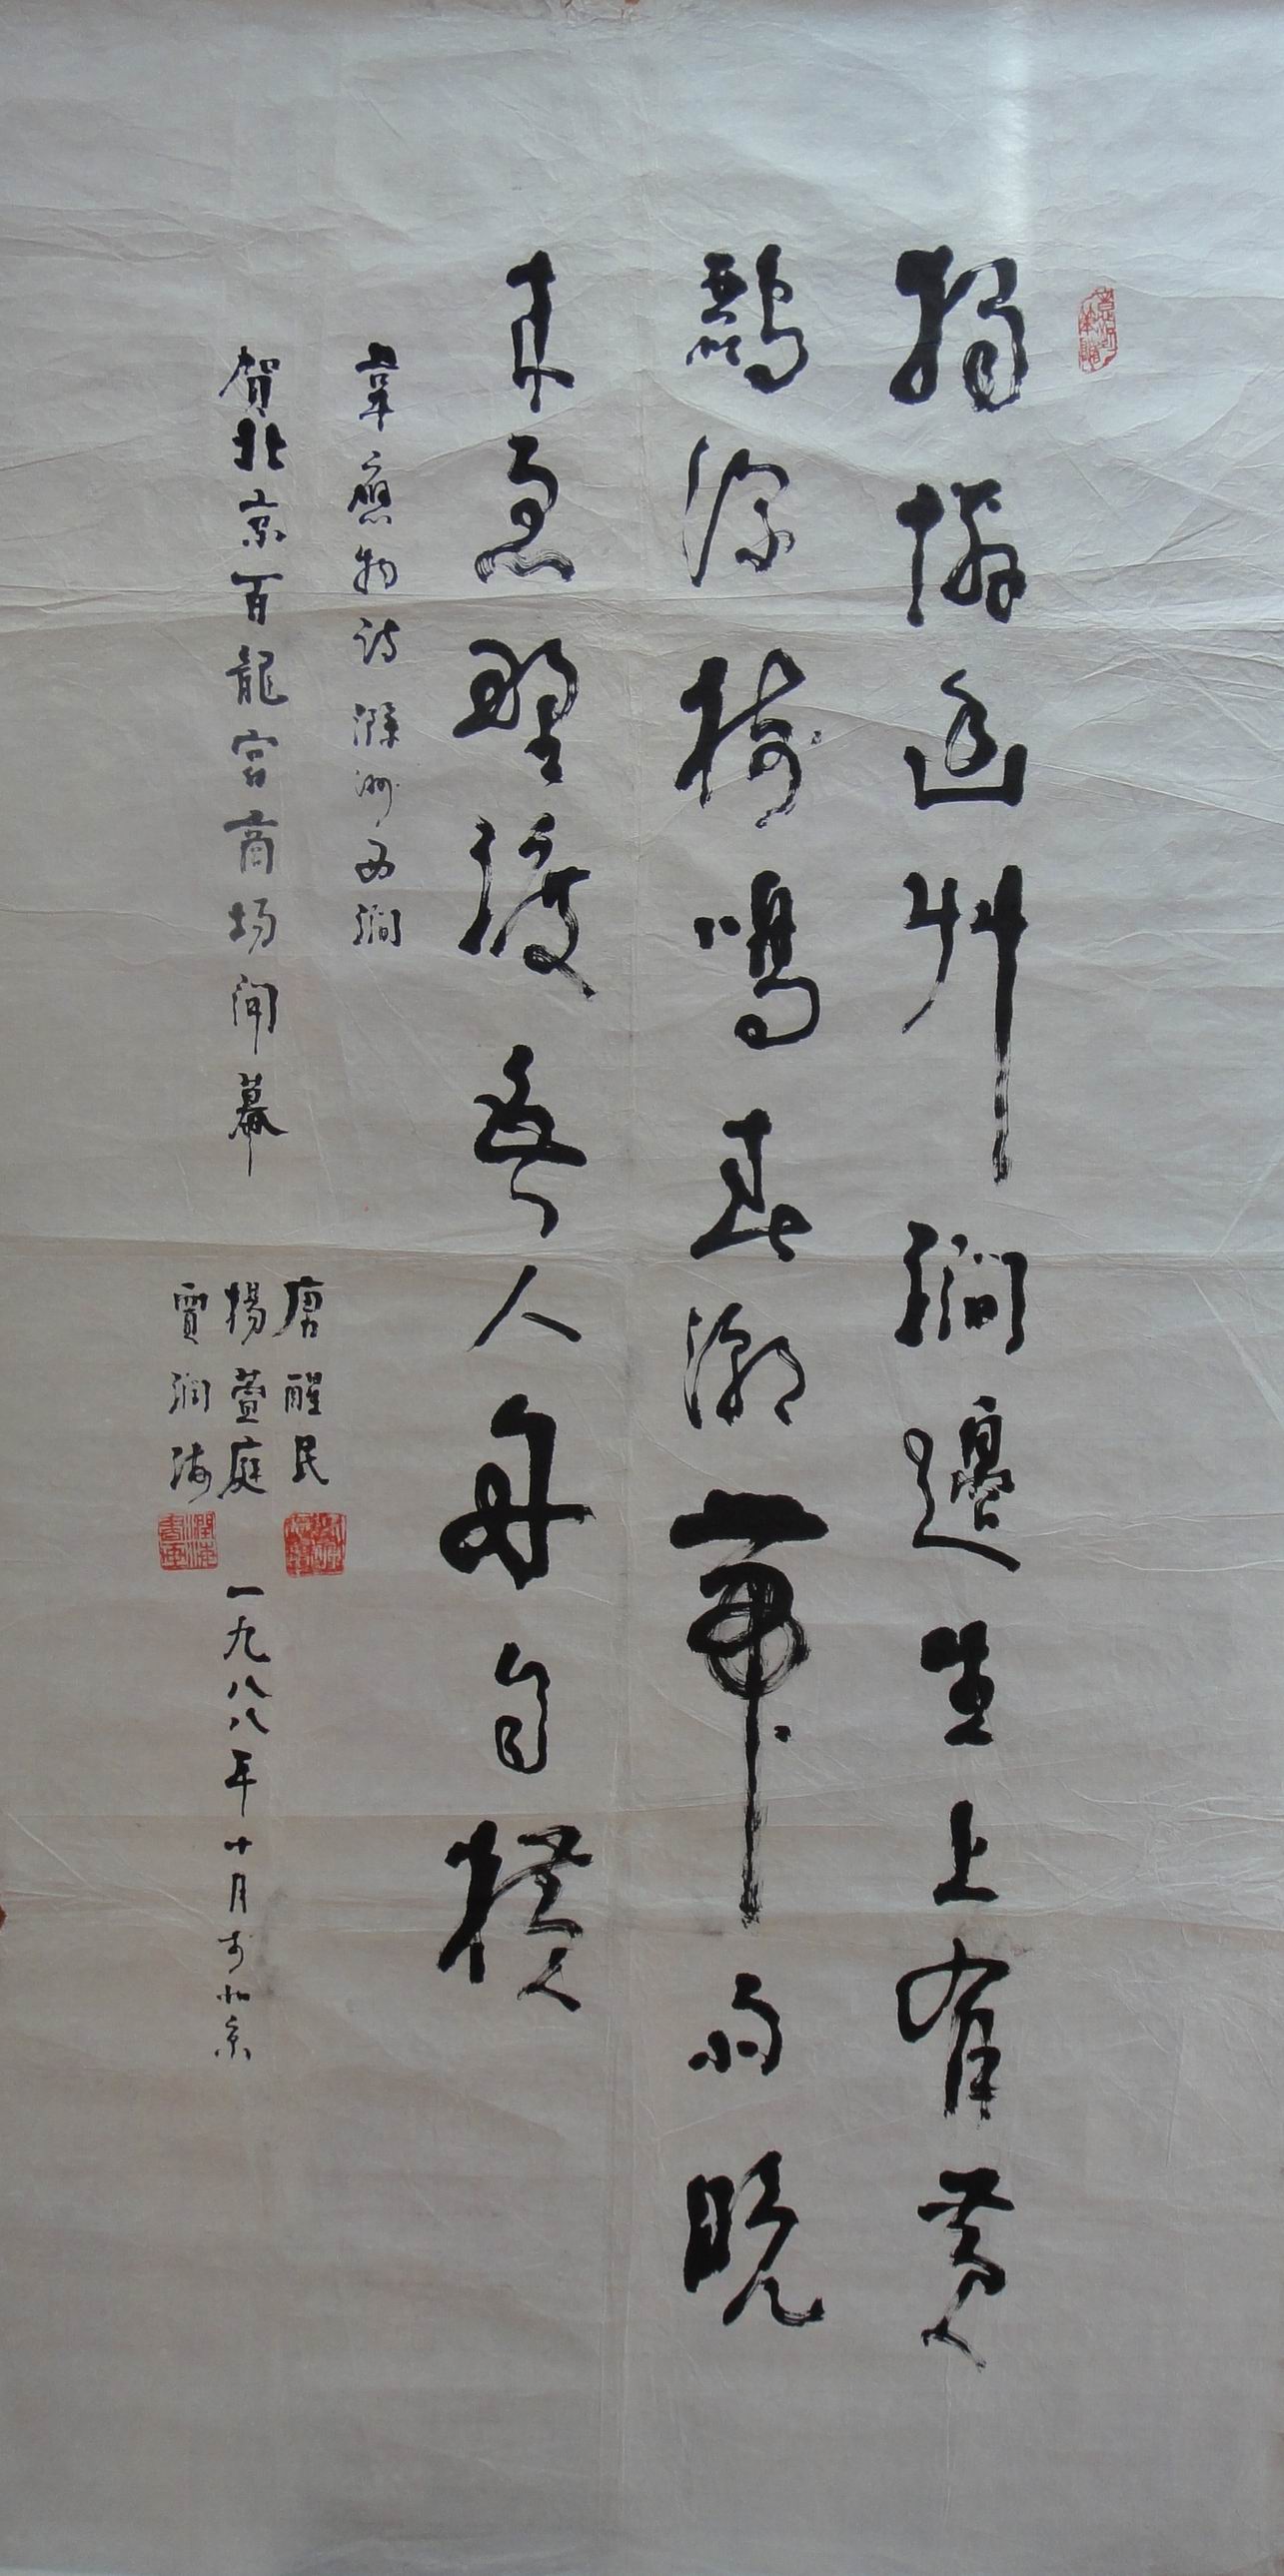 獨憐幽艸澗邊生上有黃
鸝深樹鳴春潮帶雨晚
來急野渡無人舟自橫
韋應物詩滁州西澗
賀北京百龍宮商場開幕
唐醒民
楊萱庭
賈潤海
一九八八年十月於北京
潤海書畫